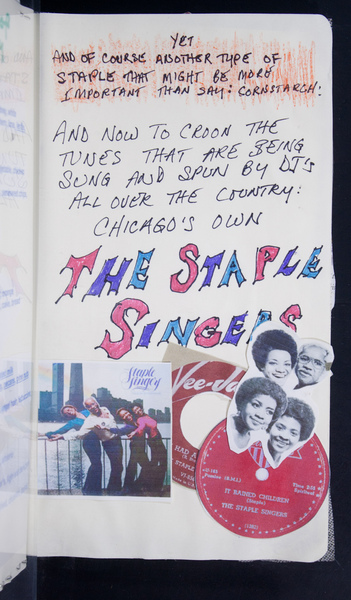 YET
AND OF COURSE ANOTHER TYPE OF
STAPLE THAT MIGHT BE MORE
IMPORTANT THAN SAY: CORNSTARCH:
AND NOW TO CROON THE
TUNES THAT ARE BEING
SUNG AND SPUN BY DJ'S
ALL OVER THE COUNTRY:
CHICAGO'S OWN
THE STAPLE
SINGERS
Staple
Singers
Vee-Ja
HAD A
STAPLE
IT RAINED CHILDREN
(Staple)
THE STAPLE SINGERS